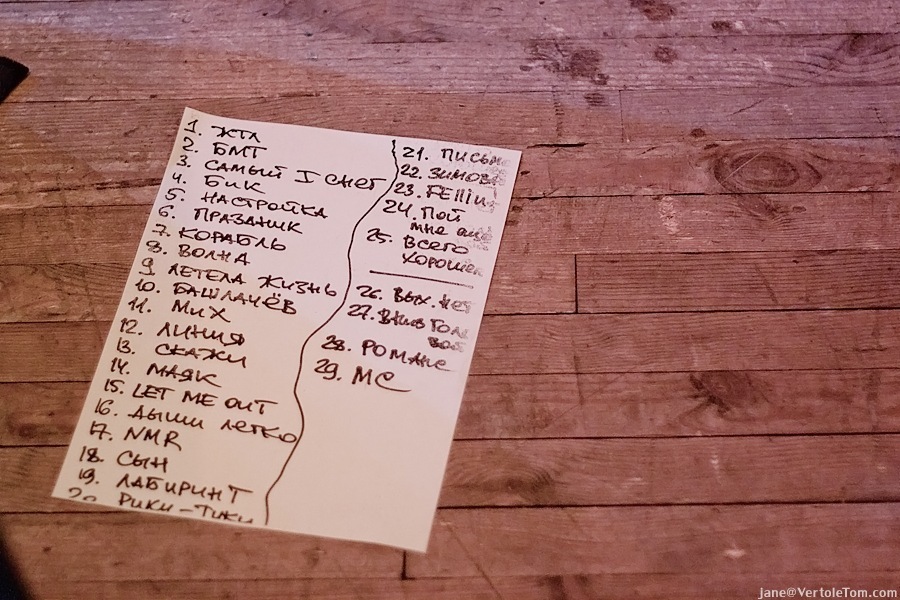 1. ЖТЛ
2. БМТ
3. САМЫЙ I СНЕГ
4. БИК
5. НАСТРОЙКА
6. ПРАЗДНИК
7. КОРАБЛЬ
8. ВОЛНА
9. ЛЕТЕЛА ЖИЗНЬ
10. БАШЛАЧЁВ
11. МиХ
12. ЛИНИЯ
13. СКАЖИ
14. МАЯК
15. LET ME OUT
16. ДЫШИ ЛЕГКО
17. NMR
18. СЫН
19. ЛАБИРИНТ
20 РИКИ-ТИКИ
21. ПИСЬМ
22. ЗИМОВ
23. FEllini
24. ПОЙ
МНЕ ещё
25. ВСЕГО
ХОРОШЕГ
26. ВЫХ. НЕТ
27. ВНИЗ ГОЛО
ВОЙ
28. РОМАНС
29. МС
jane@VertoleTom.com